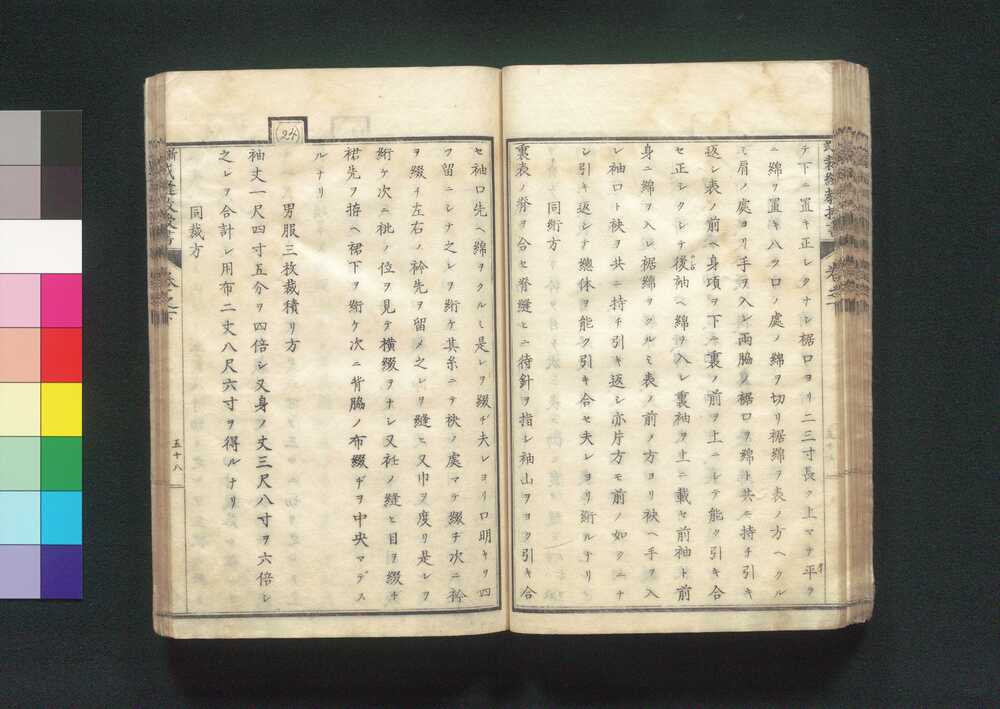 チ下ニ置キ正シクナシ裾口ヨリ二三寸長ク上マテ平ラ
ニ綿ヲ置キ八ツ口ノ處ノ綿ヲ切リ裾綿ヲ表ノ方ヘクル
ミ肩ノ處ヨリ手ヲ入レ両脇ノ裾口ヲ綿ト共ニ持チ引キ
返シ表ノ前ヘ身項ヲ下ニ裏ノ前ヲ上ニシテ能ク引キ合
セ正シクシテ後袖ヘ綿ヲ入レ裏袖ヲ上ニ載セ前袖ト前
身ニ綿ヲ入レ裾綿ヲクルミ表ノ前ノ方ヨリ袂ヘ手ヲ入
レ袖口ト袂ヲ共ニ持チ引キ返シ亦片方モ前ノ如クニナ
シ引キ返シテ總体ヲ能ク引キ合セ夫レヨリ絎ルナリ
同絎方
裏表ノ脊ヲ合セ脊縫ヒニ待針ヲ指シ袖山ヲヨク引キ合
セ袖口先ヘ綿ヲクルミ是レヲ綴チ夫レヨリ口明キヲ四
ツ留ニシテ之レヲ絎ケ其糸ニテ袂ノ處マテ綴チ次ニ衿
ヲ綴リ左右ノ衿先ヲ留メ之レヲ縫ヒ又巾ヲ度リ是レヲ
絎ケ次ニ袘ノ位ヲ見テ横綴ヲナシ又衽ノ縫ヒ目ヲ綴チ
裙先ヲ拵ヘ裙下ヲ絎ケ次ニ背脇ノ布綴ヂヲ中央マデス
ルナリ
(24)
男服三枚裁積リ方
袖丈一尺四寸五分ヲ四倍シ又身ノ丈三尺八寸ヲ六倍シ
之レヲ合計シ用布二丈八尺六寸ヲ得ルナリ
同裁方
卷之下
五十八